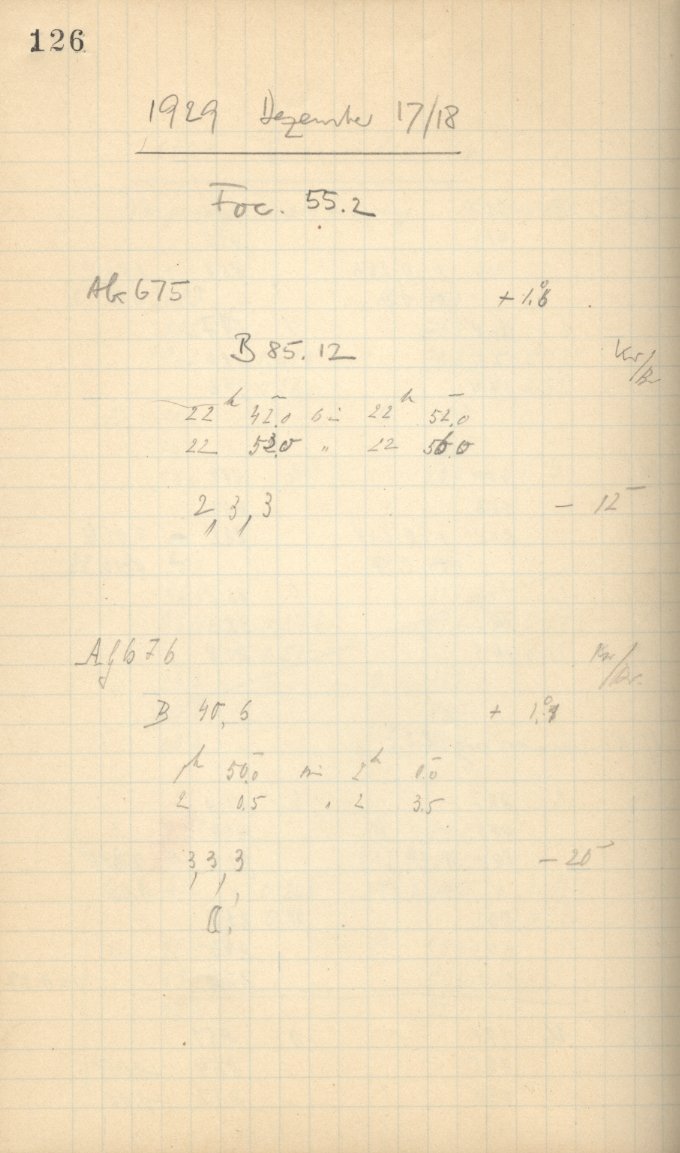 126
1929 Dezember 17/18
Foc. 55.2
675 + 1.°6
B 85.12
22h 42.0 bis 22h 52.0
22 53.0 " 22 56.0
2, 3, 3 - 12
676
B 40, 6 + 1.°1
1h 50.0 bis 2h 0.0
2 0.5 " 2 3.5
3, 3, 3 - 20